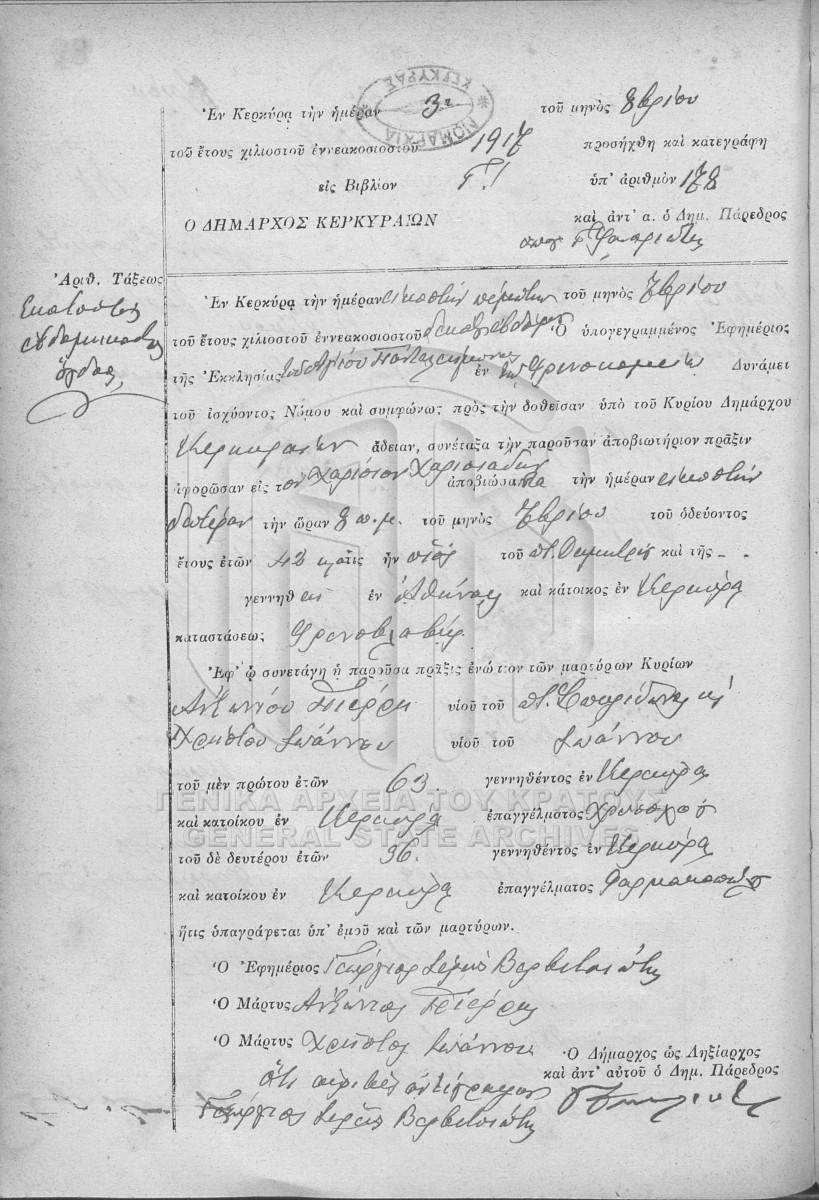 ΝΟΜΑΡΧΙΑ ΚΕΡΚΥΡΑΣ
Ἐν Κερκύρᾳ τὴν ἡμέραν 3η τοῦ μηνὸς 8βρίου
τοῦ ἔτους χιλιοστοῦ ἐννεακοσιοστοῦ 1917 προσήχθη καὶ κατεγράφη
εἰς Βιβλίον Γ! ὑπ' ἀριθμὸν 178
Ὁ ΔΗΜΑΡΧΟΣ ΚΕΡΚΥΡΑΙΩΝ καὶ ἀντ' α. ὁ Δημ. Πάρεδρος
Ἀριθ. Τάξεως
Εκατοστὸς
εβδομηκοστὸς
ὄγδοος
Ἐν Κερκύρᾳ τὴν ἡμέραν εἰκοστὴν πέμπτην τοῦ μηνὸς 7βρίου
τοῦ ἔτους χιλιοστοῦ ἐννεακοσιοστοῦ δεκάτου ἑβδόμου Ὁ ὑπογεγραμμένος Ἐφημέριος
τῆς Ἐκκλησίας τοῦ Ἁγίου Παντελεήμονος ἐν τῷ Φρενοκομείῳ Δυνάμει
τοῦ ἰσχύοντος Νόμου καὶ συμφώνως πρὸς τὴν δοθεῖσαν ὑπὸ τοῦ Κυρίου Δημάρχου
Κερκυραίων ἄδειαν, συνέταξα τὴν παροῦσαν ἀποβιωτήριον πρᾶξιν
ἀφορῶσαν εἰς τὸν Χαρίσιον Χαρισιάδην ἀποβιώσαντα τὴν ἡμέραν εἰκοστὴν
δευτέραν τὴν ὥραν 8 π.μ. τοῦ μηνὸς 7βρίου τοῦ ὁδεύοντος
ἔτους ἐτῶν 42 ὅστις ἦν υἱὸς τοῦ π. Δημητρίου καὶ τῆς -.
γεννηθεὶς ἐν Ἀθήναις καὶ κάτοικος ἐν Κερκύρᾳ
καταστάσεως Φρενοβλαβής
Ἐφ' ᾧ συνετάγη ἡ παροῦσα πρᾶξις ἐνώπιον τῶν μαρτύρων Κυρίων
Ἀντωνίου Πιέρρη υἱοῦ τοῦ π. Σπυρίδωνος καὶ
Χρήστου Ἰωάννου υἱοῦ τοῦ Ἰωάννου
τοῦ μὲν πρώτου ἐτῶν 63 γεννηθέντος ἐν Κερκύρᾳ
καὶ κατοίκου ἐν Κερκύρᾳ ἐπαγγέλματος Χρυσοχόου
τοῦ δὲ δευτέρου ἐτῶν 36. γεννηθέντος ἐν Κερκύρᾳ
καὶ κατοίκου ἐν Κερκύρᾳ ἐπαγγέλματος Φαρμακοποιοῦ
ἥτις ὑπαγράφεται ὑπ' ἐμοῦ καὶ τῶν μαρτύρων.
Ὁ Ἐφημέριος Γεώργιος Ἱερεὺς Βαρβιτσιώτης
Ὁ Μάρτυς Ἀντώνιος Πιέρρης
Ὁ Μάρτυς Χρῆστος Ἰωάννου
Ὁ Δήμαρχος ὡς Ληξίαρχος
καὶ ἀντ' αὐτοῦ ὁ Δημ. Πάρεδρος
Ὅτι ἀκριβὲς ἀντίγραφον
Γεώργιος Ἱερεὺς Βαρβιτσιώτης
ΓΕΝΙΚΑ ΑΡΧΕΙΑ ΤΟΥ ΚΡΑΤΟΥΣ
GENERAL STATE ARCHIVES